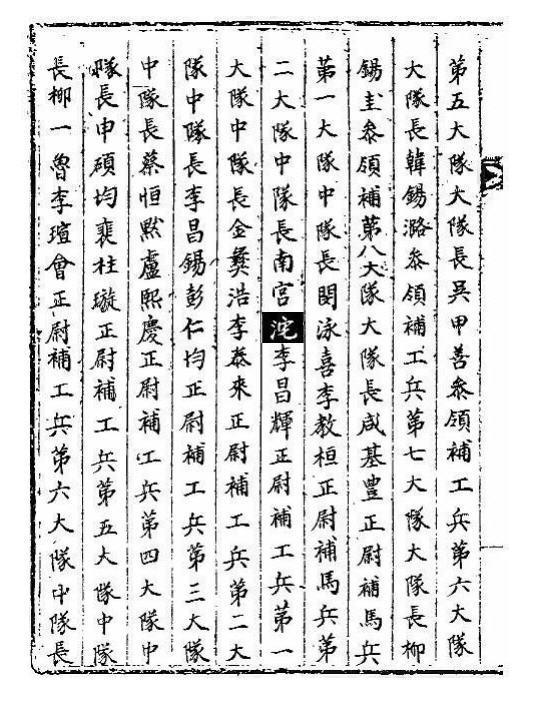 第五大隊大隊長吳甲善叅領補工兵第六大隊
大隊長韓錫潞叅領補工兵第七大隊大隊長柳
錫圭叅領補第八大隊大隊長咸基豊正尉補馬兵
第一大隊中隊長閔泳喜李教桓正尉補馬兵第
二大隊中隊長南宮㳸李昌輝正尉補工兵第一
大隊中隊長金彛浩李泰來正尉補工兵第二大
隊中隊長李昌錫彭仁均正尉補工兵第三大隊
中隊長蔡恒默盧熙慶正尉補工兵第四大隊中
隊長申碩均裵柱璇正尉補工兵第五大隊中隊
長柳一魯李瑄會正尉補工兵第六大隊中隊長